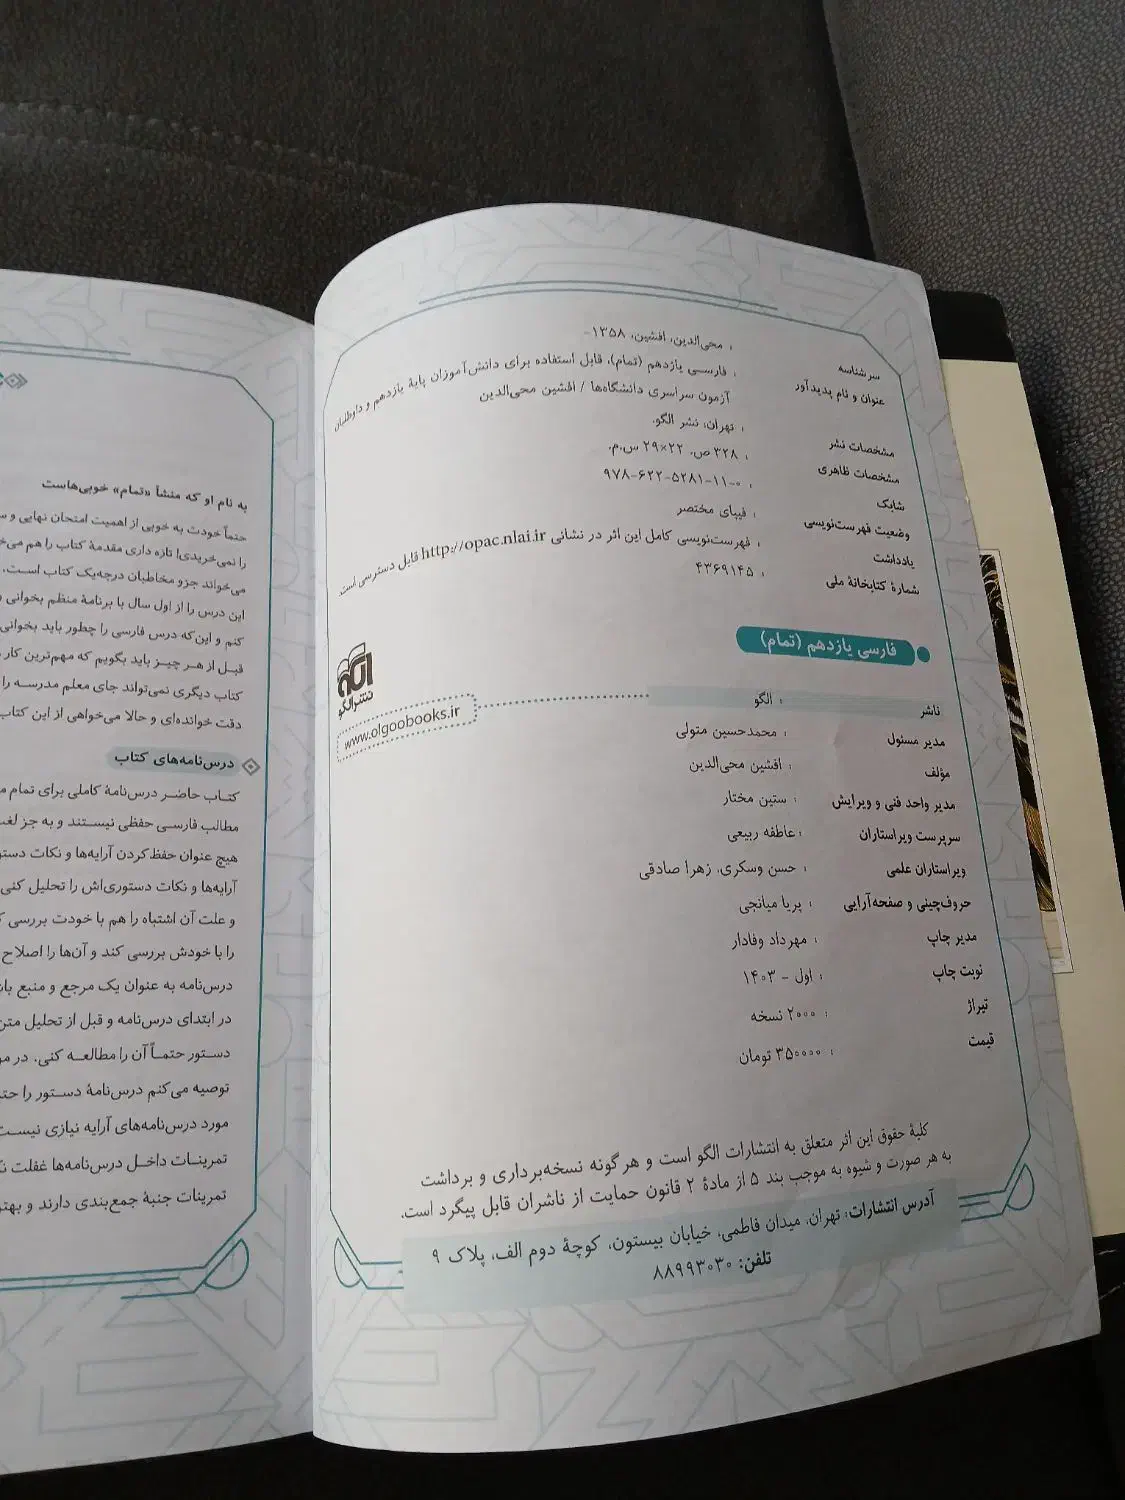 سرشناسه : محی‌الدین، افشین، ۱۳۵۸-
عنوان و نام پدیدآور : فارسی یازدهم (تمام)، قابل استفاده برای دانش‌آموزان پایهٔ یازدهم و داوطلبان
آزمون سراسری دانشگاه‌ها / افشین محی‌الدین
مشخصات نشر : تهران: نشر الگو.
مشخصات ظاهری : ۳۲۸ ص. ۲۲×۲۹ س.م.
شابک : ۹۷۸-۶۲۲-۵۲۸۱-۱۱-۰
وضعیت فهرست‌نویسی : فیپای مختصر
یادداشت : فهرست‌نویسی کامل این اثر در نشانی http://opac.nlai.ir قابل دسترسی است.
شمارهٔ کتابخانهٔ ملی : ۴۳۶۹۱۴۵
فارسی یازدهم (تمام)
نشر الگو
www.olgoobooks.ir
ناشر : الگو
مدیر مسئول : محمدحسین متولی
مؤلف : افشین محی‌الدین
مدیر واحد فنی و ویرایش : ستین مختار
سرپرست ویراستاران : عاطفه ربیعی
ویراستاران علمی : حسن وسکری، زهرا صادقی
حروف‌چینی و صفحه‌آرایی : پریا میانجی
مدیر چاپ : مهرداد وفادار
نوبت چاپ : اول - ۱۴۰۳
تیراژ : ۲۰۰۰ نسخه
قیمت : ۳۵۰۰۰۰ تومان
کلیهٔ حقوق این اثر متعلق به انتشارات الگو است و هر گونه نسخه‌برداری و برداشت
به هر صورت و شیوه به موجب بند ۵ از مادهٔ ۲ قانون حمایت از ناشران قابل پیگرد است.
آدرس انتشارات: تهران، میدان فاطمی، خیابان بیستون، کوچهٔ دوم الف، پلاک ۹
تلفن: ۸۸۹۹۳۰۳۰
به نام او که منشأ «تمام» خوبی‌هاست
حتماً خودت به خوبی از اهمیت امتحان نهایی و
را نمی‌خریدی! تازه داری مقدمهٔ کتاب را هم
می‌خواند جزو مخاطبان درجه‌یک کتاب است.
این درس را از اول سال با برنامهٔ منظم بخوانی
کنم و این‌که درس فارسی را چطور باید بخوانی
قبل از هر چیز باید بگویم که مهم‌ترین کار
کتاب دیگری نمی‌تواند جای معلم مدرسه را
دقت خوانده‌ای و حالا می‌خواهی از این کتاب
درس‌نامه‌های کتاب
کتاب حاضر درس‌نامهٔ کاملی برای تمام
مطالب فارسی حفظی نیستند و به جز
هیچ عنوان حفظ کردن آرایه‌ها و نکات
آرایه‌ها و نکات دستوری‌اش را تحلیل کنی
و علت آن اشتباه را هم با خودت بررسی
را با خودش بررسی کند و آن‌ها را اصلاح
درس‌نامه به عنوان یک مرجع و منبع
در ابتدای درس‌نامه و قبل از تحلیل متن
دستور حتماً آن را مطالعه کنی. در
توصیه می‌کنم درس‌نامهٔ دستور را
مورد درس‌نامه‌های آرایه نیازی نیست
تمرینات داخل درس‌نامه‌ها غفلت
تمرینات جنبهٔ جمع‌بندی دارند و